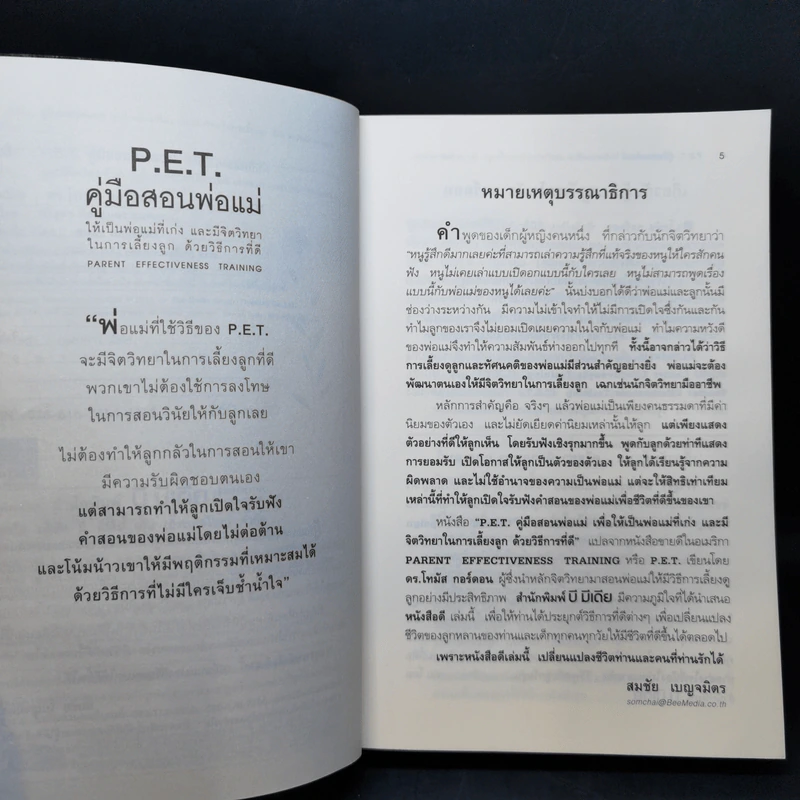 P.E.T.
คู่มือสอนพ่อแม่
ให้เป็นพ่อแม่ที่เก่ง และมีจิตวิทยา
ในการเลี้ยงลูก ด้วยวิธีการที่ดี
PARENT EFFECTIVENESS TRAINING
“พ่อแม่ที่ใช้วิธีของ P.E.T.
จะมีจิตวิทยาในการเลี้ยงลูกที่ดี
พวกเขาไม่ต้องใช้การลงโทษ
ในการสอนวินัยให้กับลูกเลย
ไม่ต้องทำให้ลูกกลัวในการสอนให้เขา
มีความรับผิดชอบตนเอง
แต่สามารถทำให้ลูกเปิดใจรับฟัง
คำสอนของพ่อแม่โดยไม่ต่อต้าน
และโน้มน้าวเขาให้มีพฤติกรรมที่เหมาะสมได้
ด้วยวิธีการที่ไม่มีใครเจ็บช้ำน้ำใจ”
5
หมายเหตุบรรณาธิการ
คำพูดของเด็กผู้หญิงคนหนึ่ง ที่กล่าวกับนักจิตวิทยาว่า
“หนูรู้สึกดีมากเลยค่ะที่สามารถเล่าความรู้สึกที่แท้จริงของหนูให้ใครสักคน
ฟัง หนูไม่เคยเล่าแบบเปิดอกแบบนี้กับใครเลย หนูไม่สามารถพูดเรื่อง
แบบนี้กับพ่อแม่ของหนูได้เลยค่ะ” นั้นบ่งบอกได้ดีว่าพ่อแม่และลูกนั้นมี
ช่องว่างระหว่างกัน มีความไม่เข้าใจทำให้ไม่มีการเปิดใจซึ่งกันและกัน
ทำไมลูกของเราจึงไม่ยอมเปิดเผยความในใจกับพ่อแม่ ทำไมความหวังดี
ของพ่อแม่จึงทำให้ความสัมพันธ์ห่างออกไปทุกที ทั้งนี้อาจกล่าวได้ว่าวิธี
การเลี้ยงดูลูกและทัศนคติของพ่อแม่มีส่วนสำคัญอย่างยิ่ง พ่อแม่จะต้อง
พัฒนาตนเองให้มีจิตวิทยาในการเลี้ยงลูก เฉกเช่นนักจิตวิทยามืออาชีพ
หลักการสำคัญคือ จริงๆ แล้วพ่อแม่เป็นเพียงคนธรรมดาที่มีค่า
นิยมของตัวเอง และไม่ยัดเยียดค่านิยมเหล่านั้นให้ลูก แต่เพียงแสดง
ตัวอย่างที่ดีให้ลูกเห็น โดยรับฟังเชิงรุกมากขึ้น พูดกับลูกด้วยท่าทีแสดง
การยอมรับ เปิดโอกาสให้ลูกเป็นตัวของตัวเอง ให้ลูกได้เรียนรู้จากความ
ผิดพลาด และไม่ใช้อำนาจของความเป็นพ่อแม่ แต่จะให้สิทธิเท่าเทียม
เหล่านี้ที่ทำให้ลูกเปิดใจรับฟังคำสอนของพ่อแม่เพื่อชีวิตที่ดีขึ้นของเขา
หนังสือ “P.E.T. คู่มือสอนพ่อแม่ เพื่อให้เป็นพ่อแม่ที่เก่ง และมี
จิตวิทยาในการเลี้ยงลูก ด้วยวิธีการที่ดี” แปลจากหนังสือขายดีในอเมริกา
PARENT EFFECTIVENESS TRAINING หรือ P.E.T. เขียนโดย
ดร.โทมัส กอร์ดอน ผู้ซึ่งนำหลักจิตวิทยามาสอนพ่อแม่ให้มีวิธีการเลี้ยงดู
ลูกอย่างมีประสิทธิภาพ สำนักพิมพ์ บี มีเดีย มีความภูมิใจที่ได้นำเสนอ
หนังสือดี เล่มนี้ เพื่อให้ท่านได้ประยุกต์วิธีการที่ดีต่างๆ เพื่อเปลี่ยนแปลง
ชีวิตของลูกหลานของท่านและเด็กทุกคนทุกวัยให้มีชีวิตที่ดีขึ้นได้ตลอดไป
เพราะหนังสือดีเล่มนี้ เปลี่ยนแปลงชีวิตท่านและคนที่ท่านรักได้
สมชัย เบญจมิตร
somchai@BeeMedia.co.th